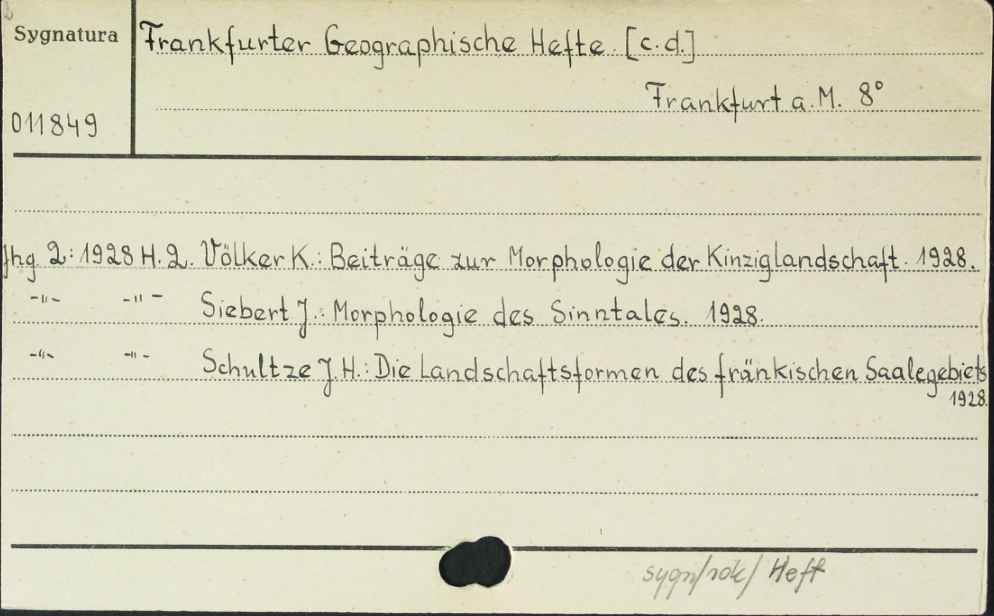 Sygnatura
Frankfurter Geographische Hefte [c.d.]
Frankfurt a.M. 8°
011849
Jhg. 2: 1928 H. 2. Völker K.: Beiträge zur Morphologie der Kinziglandschaft. 1928.
-"- -"- Siebert J.: Morphologie des Sinntales. 1928.
-"- -"- Schultze J.H.: Die Landschaftsformen des fränkischen Saalegebiets
1928.
sygn/rok/ Heft